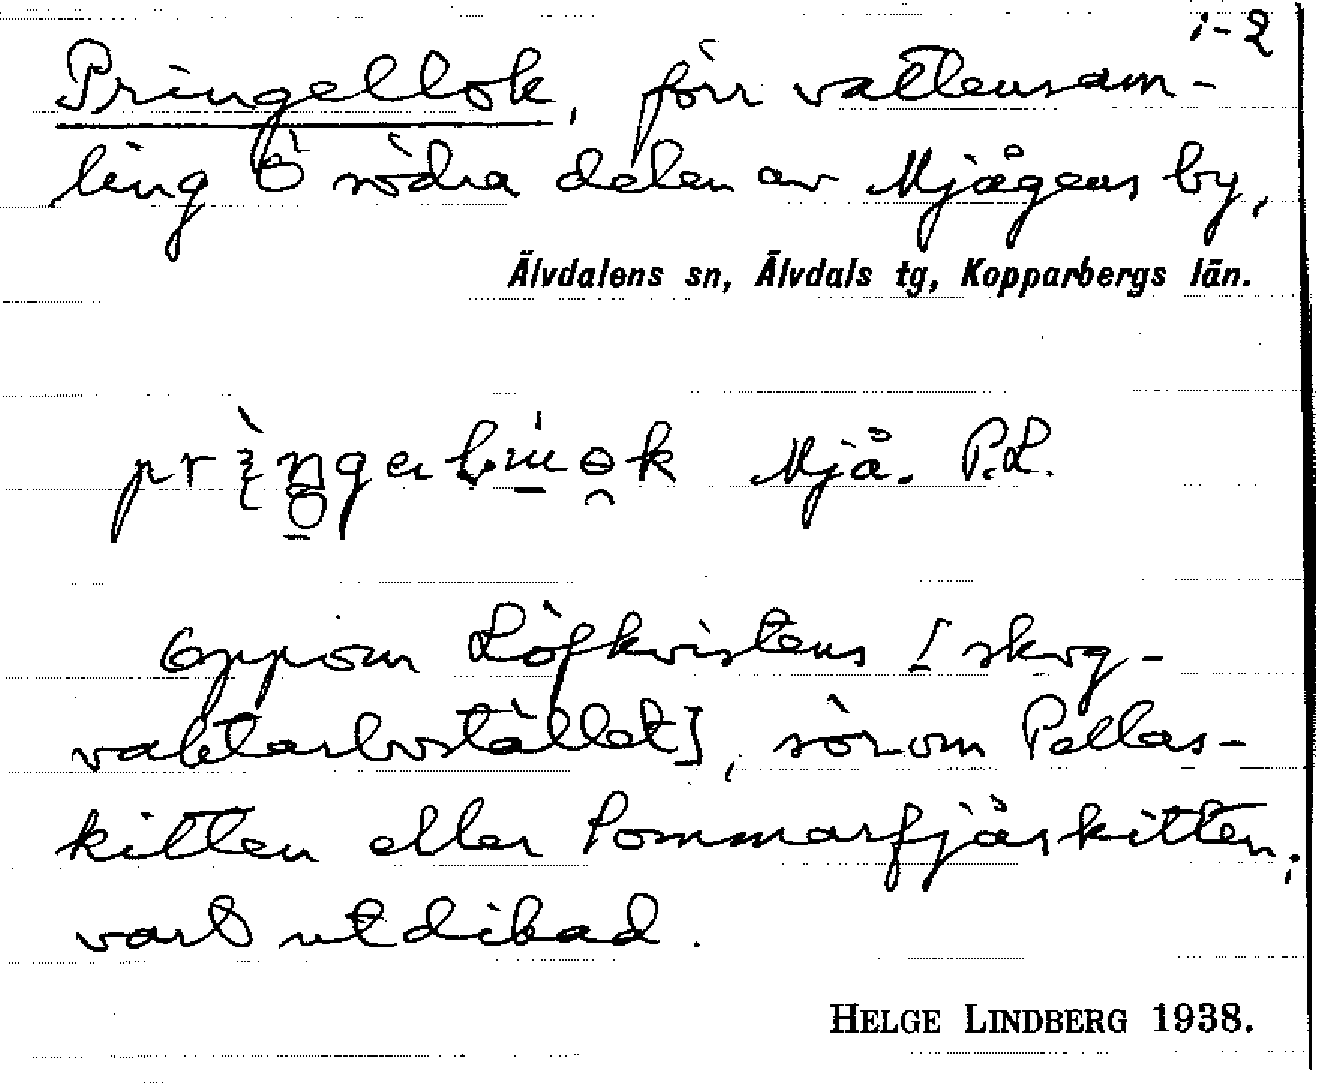 1-2
Pringellok, förr vattensam-
ling Ö södra delen av Mjågens by,
Älvdalens sn, Älvdals tg, Kopparbergs län.
Mjå. P.L.
oppom Löfkvistens [skog-
vaktarbostället], sörom Pellas-
kitten eller Pommarfjäskitten;
vart utdikad.
HELGE LINDBERG 1938.